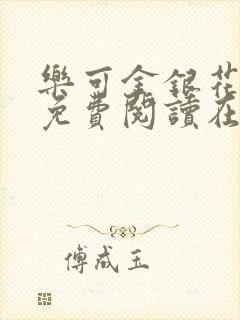 樂可金銀花
免費閱讀在
傅成玉